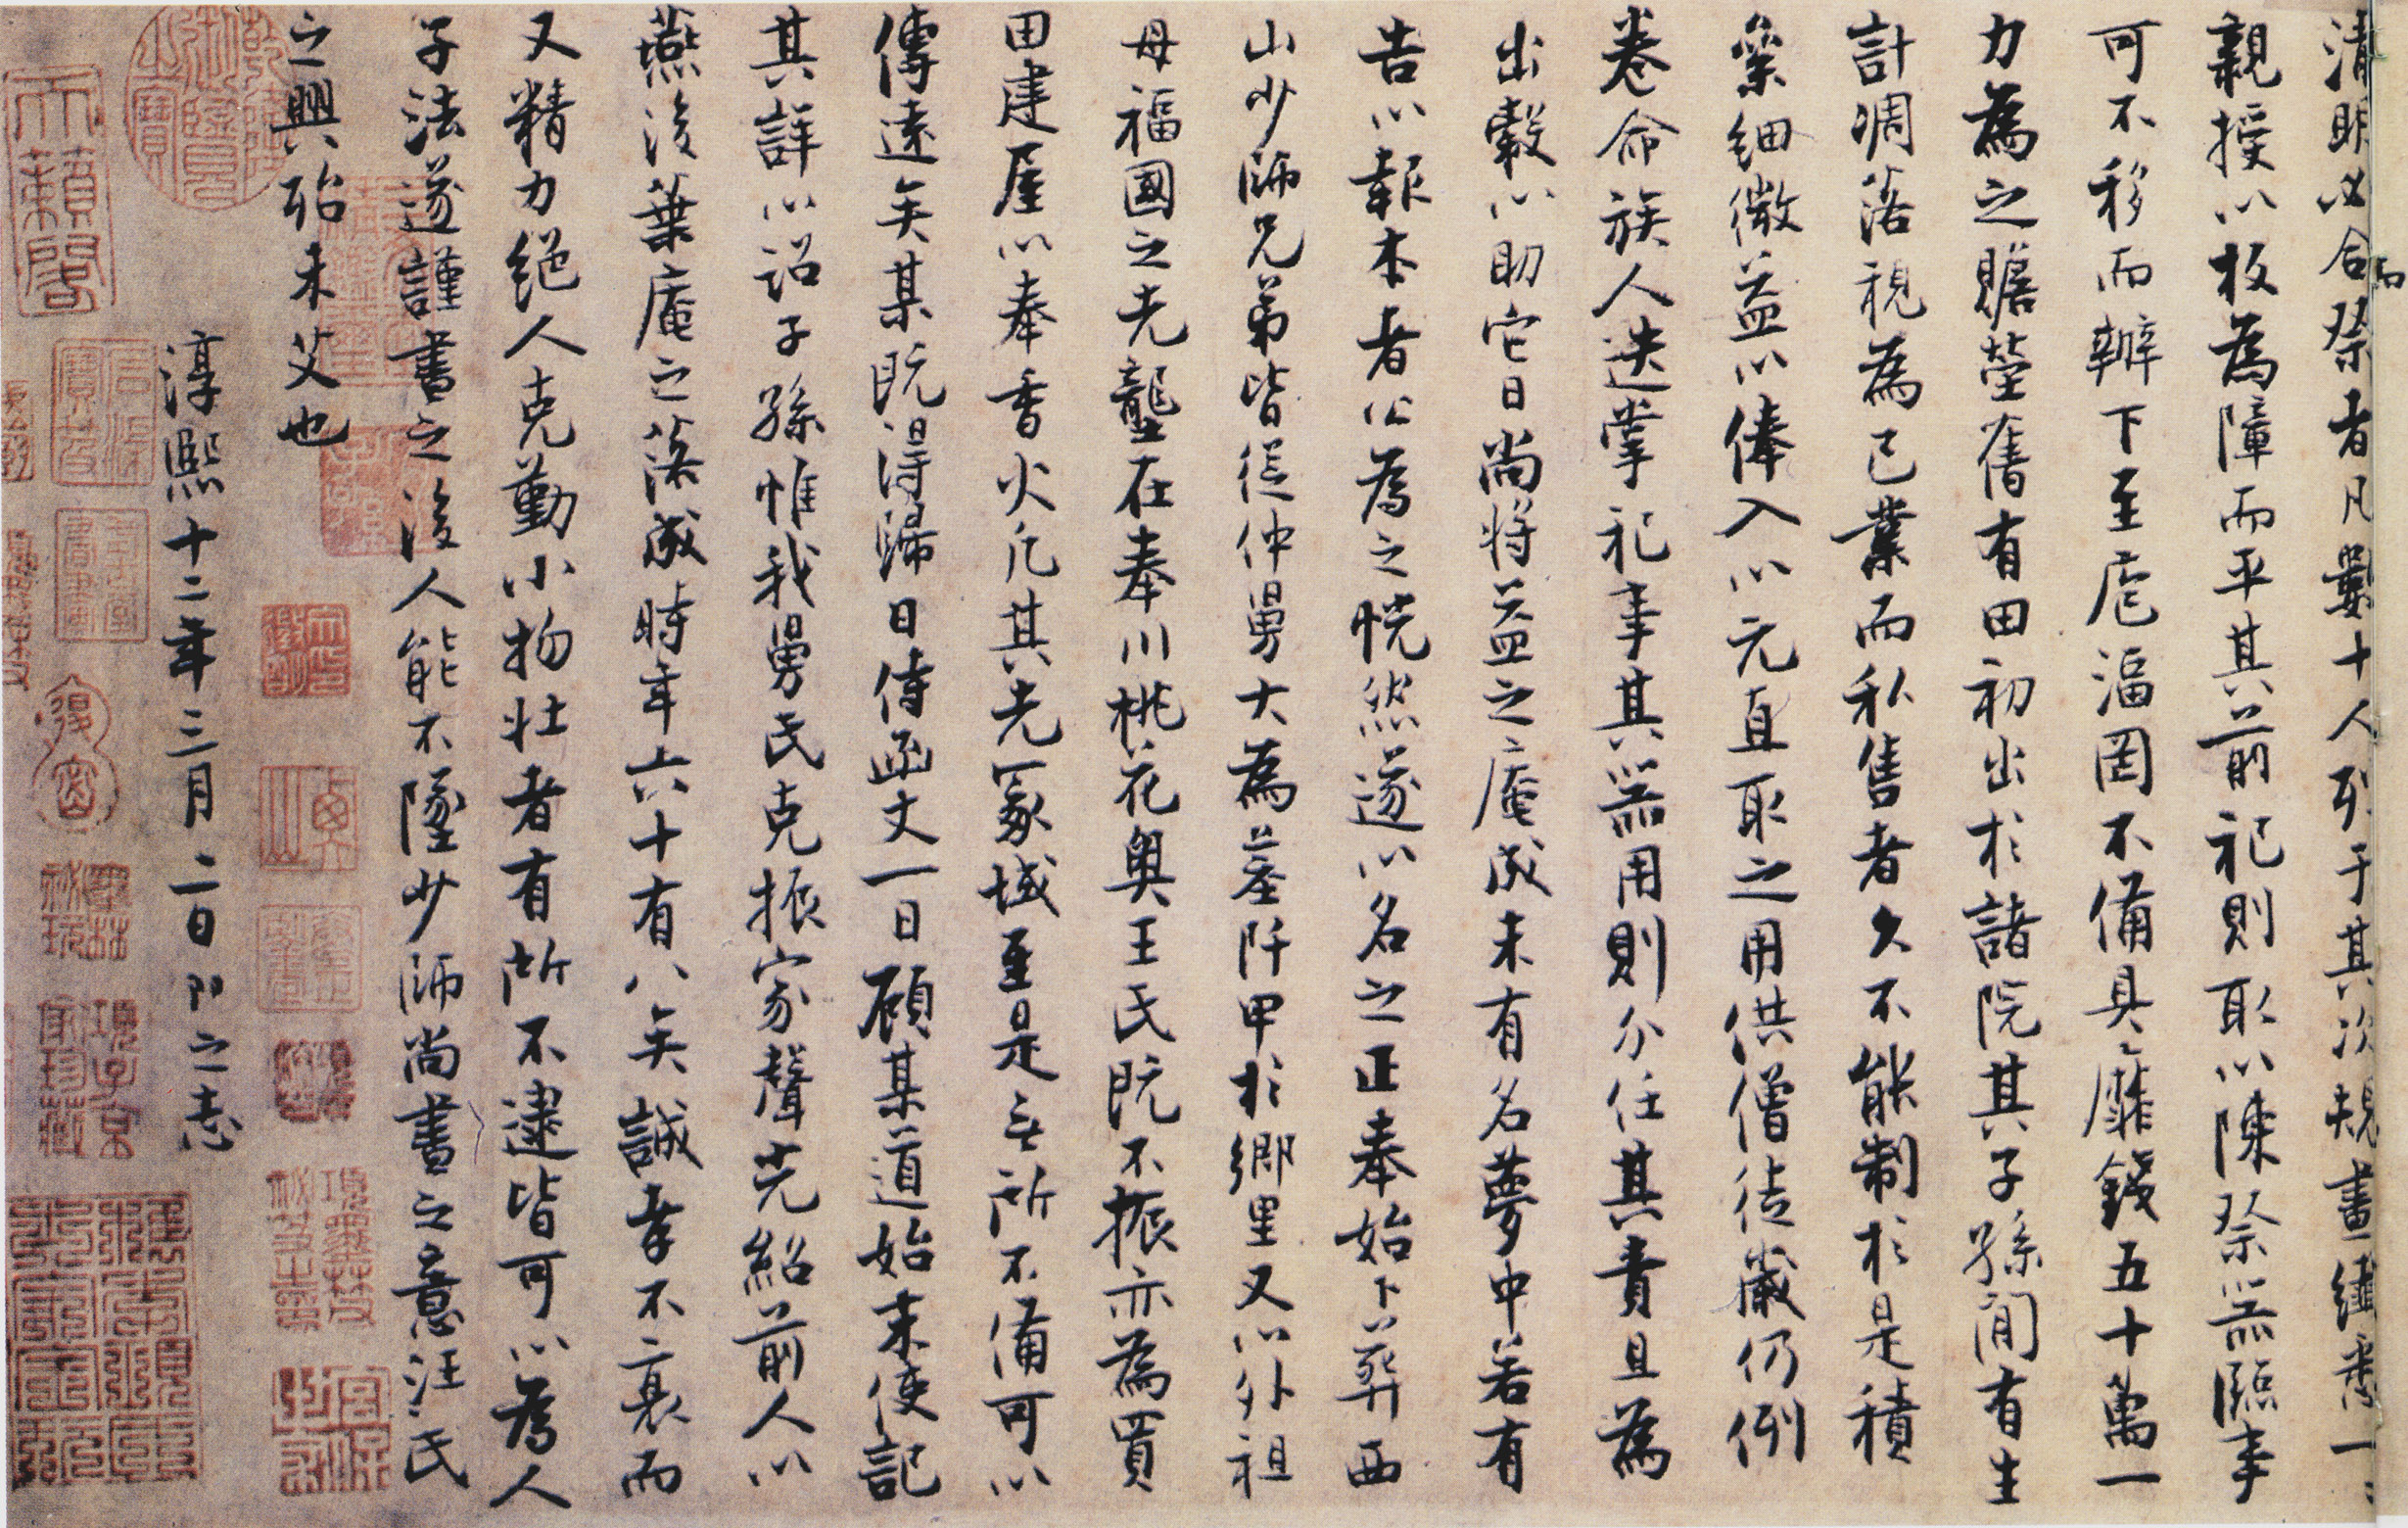 清明必合祭者凡數十人列于其次規畫纖悉一一
親授以板為障而平其前祀則取以陳祭器臨事
可不移而辦下至庖湢罔不備具靡錢五十萬一
力為之贍塋舊有田初出於諸院其子孫間有生
計凋落視為己業而私售者久不能制於是積
絫細微益以俸入以元直取之用供僧徒歲仍例
卷命族人迭掌祀事其器用則分任其責且為
出穀以助它日尚將益之庵成未有名夢中若有
告以報本者公為之恍然遂以名之正奉始卜葬西
山少師兄弟皆從仲舅大為墓阡甲於鄉里又以外祖
母福國之先壟在奉川桃花奧王氏既不振亦為買
田建屋以奉香火凡其先冢域至是無所不備可以
傳遠矣某既得歸日侍函丈一日顧某道始末使記
其詳以詔子孫惟我舅氏克振家聲光紹前人以
燕後葉庵之落成時年六十有八矣誠孝不衰而
又精力絕人克勤小物壯者有所不逮皆可以為人
子法遂謹書之後人能不墜少師尚書之意汪氏
之興殆未艾也
淳熙十二年三月二日
之志